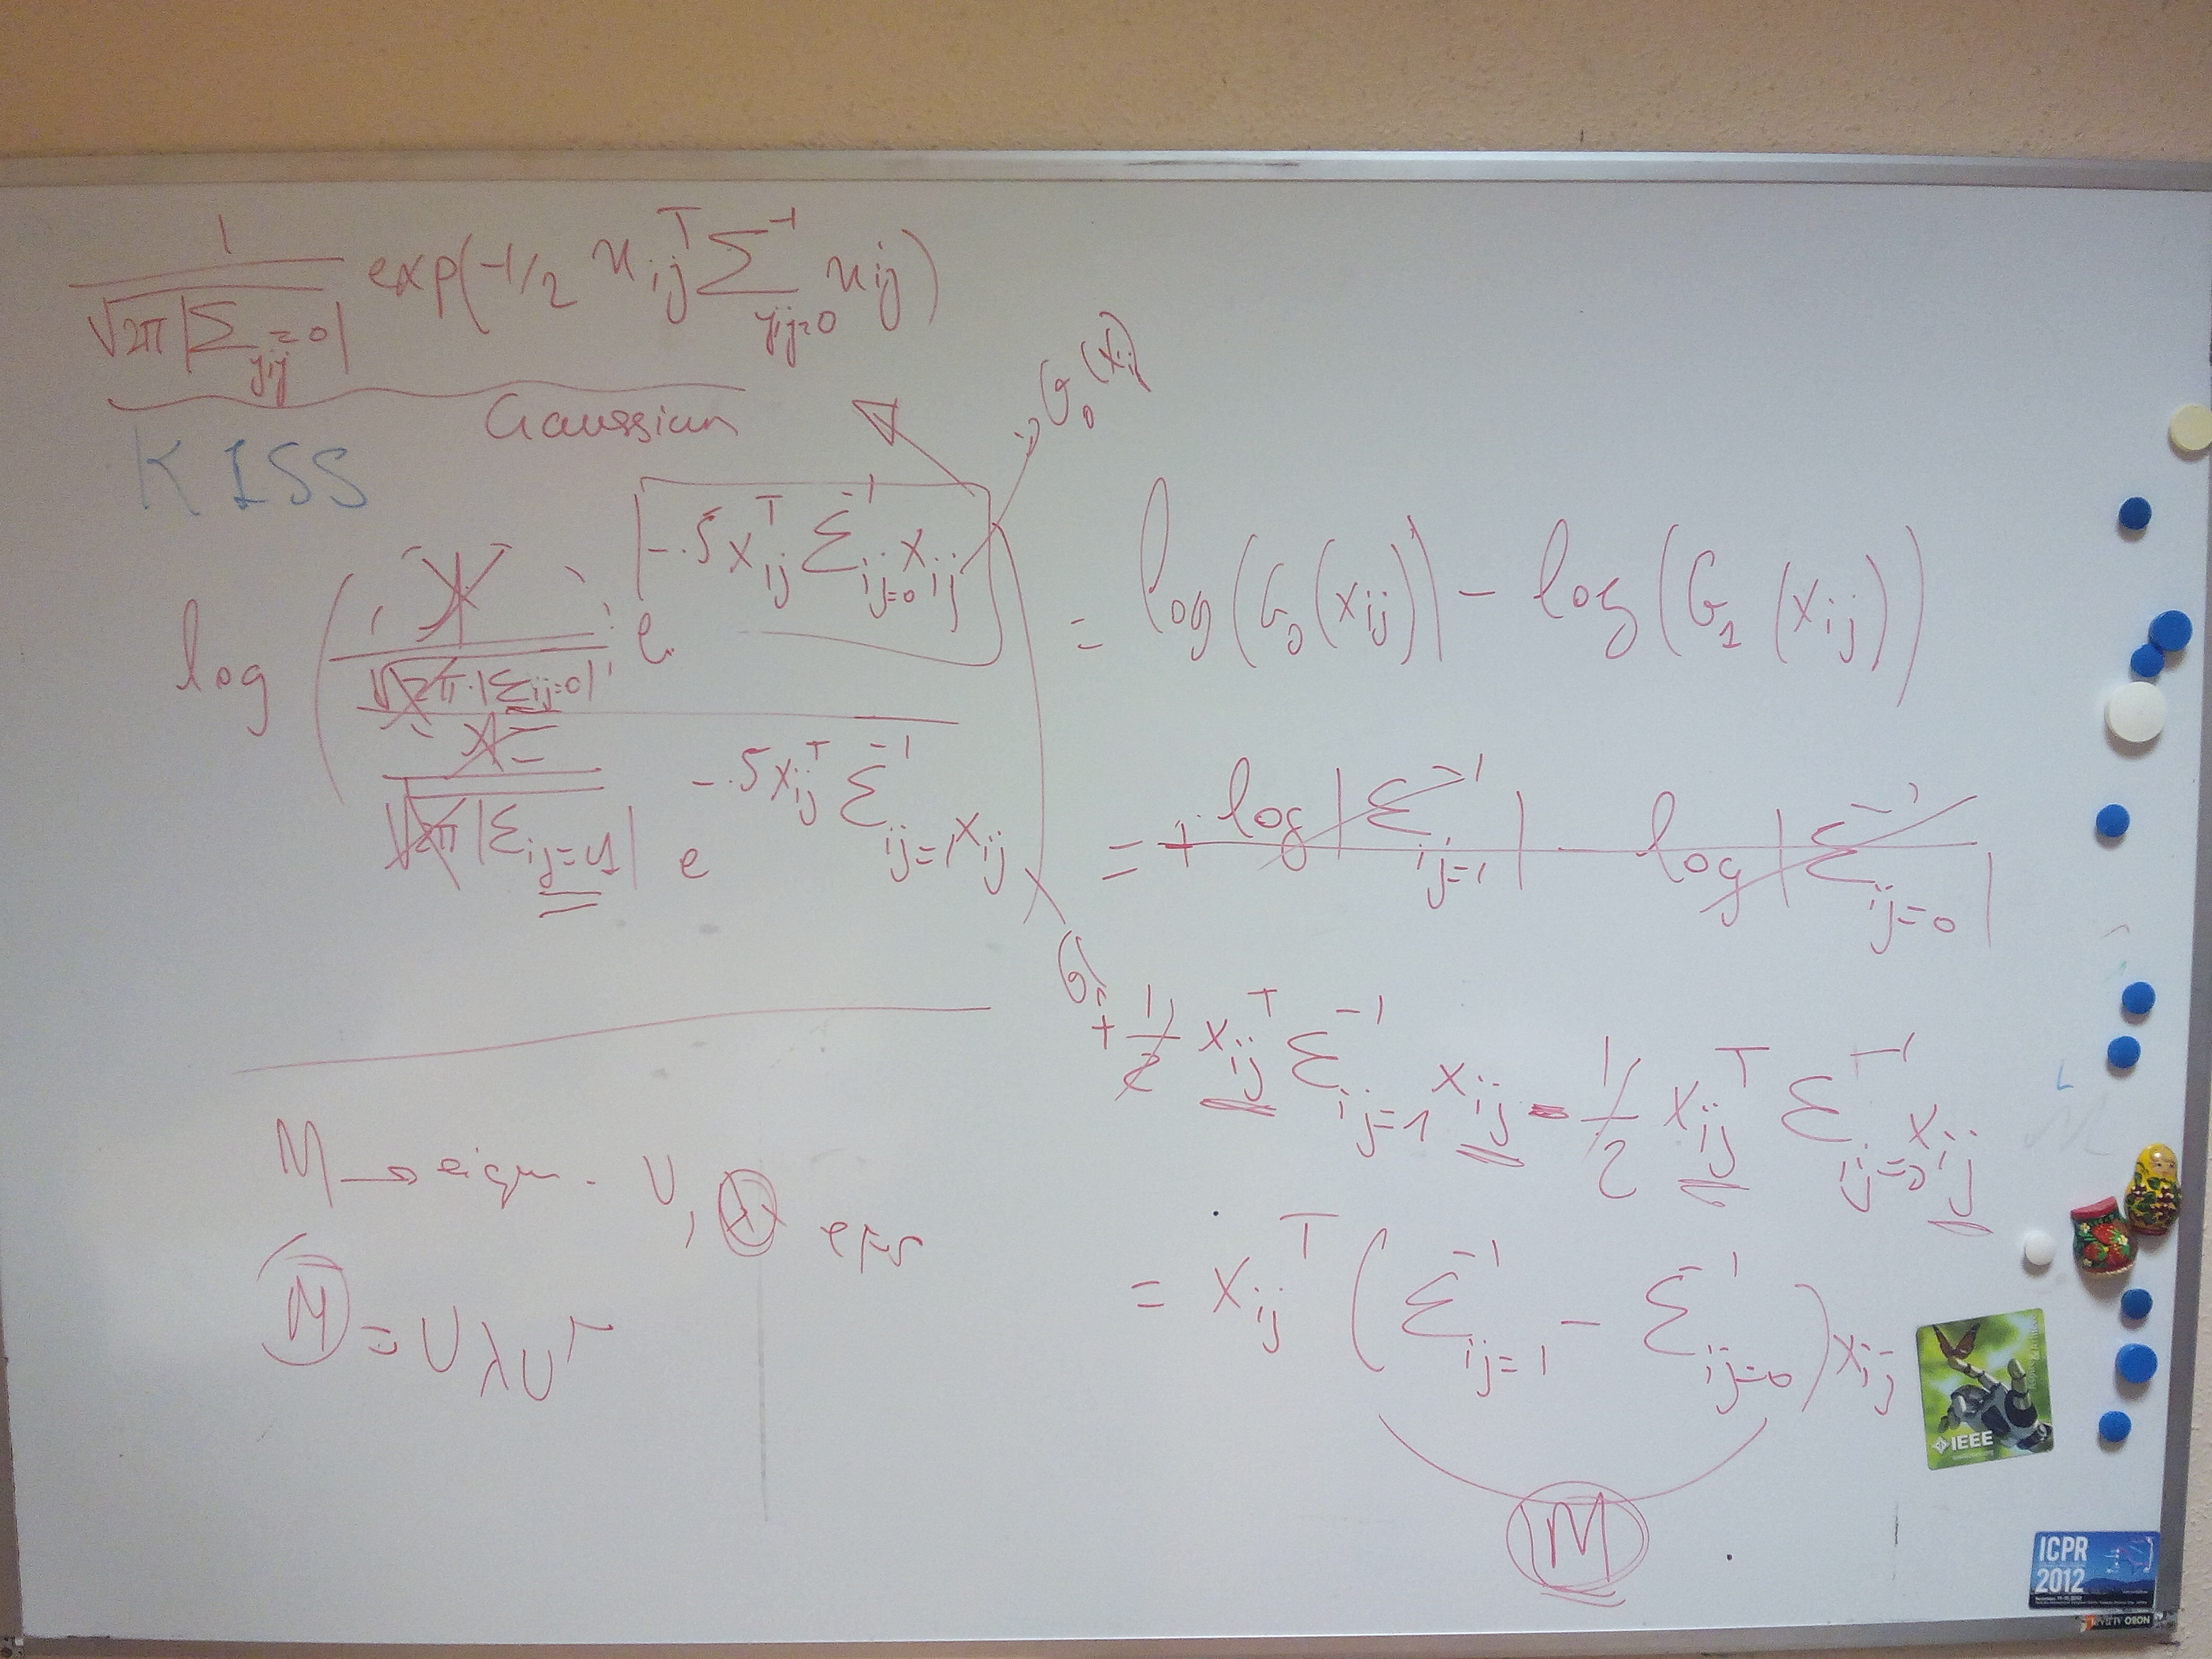 1
√2π|Σyij=0| exp(-1/2 xij^T Σ^-1 yij=0 xij)
Gaussian
G0(xij)
KISS
log ( 1 / √2π·|Σij=0| e -.5xij^T Σ^-1 ij=0 xij
1 / √2π|Σij=1| e -.5xij^T Σ^-1 ij=1 xij
G1
= log(G0(xij)) - log(G1(xij))
= + log|Σ^-1 ij=1| - log|Σ^-1 ij=0|
+ 1/2 xij^T Σ^-1 ij=1 xij - 1/2 xij^T Σ^-1 ij=0 xij
= xij^T (Σ^-1 ij=1 - Σ^-1 ij=0) xij
M
M → eigen. U, λ eps
M = U λ U^T
IEEE
ICPR
2012